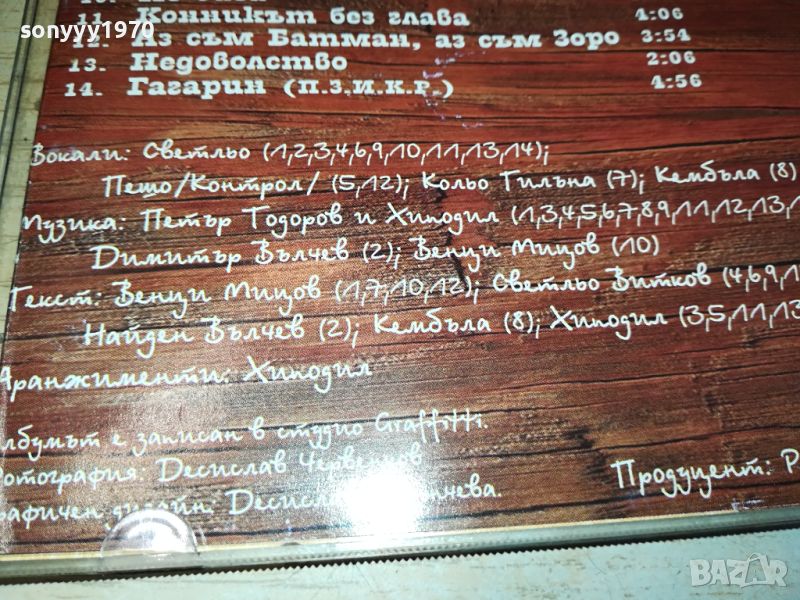 sonyyy1970
11. Конникът без глава 4:06
12. Аз съм Батман, аз съм Зоро 3:54
13. Недоволство 2:06
14. Гагарин (П.З.И.К.Р.) 4:56
Вокали: Светльо (1,2,3,4,6,9,10,11,13,14);
Пешо/Контрол/ (5,12); Кольо Гилъна (7); Кембъла (8)
Музика: Петър Тодоров и Хиподил (1,3,4,5,6,7,8,9,11,12,13,1
Димитър Вълчев (2); Венци Мицов (10)
Текст: Венци Мицов (1,7,10,12); Светльо Витков (4,6,9,1
Найден Вълчев (2); Кембъла (8); Хиподил (3,5,11,13
Аранжименти: Хиподил
лбумът е записан в студио Graffitti.
отография: Десислав
Продуцент: Р
рафичен дизайн:
BAZAR